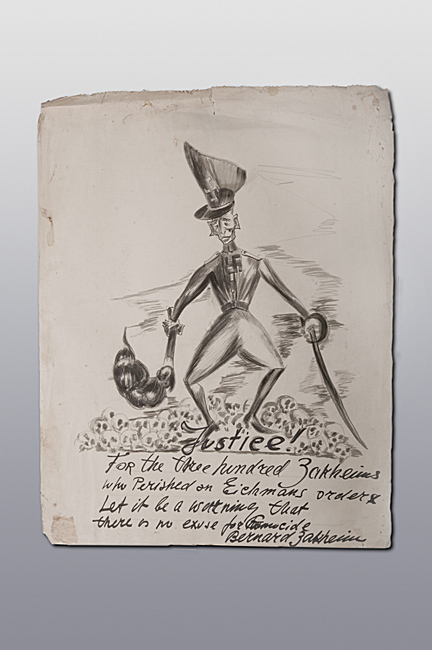 Justice!
For the three hundred Zakheims
who Perished on Eichmans orders
Let it be a warning that
there is no excuse for Genocide
Bernard Zakheim